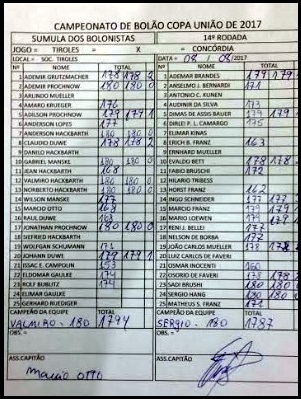 CAMPEONATO DE BOLÃO COPA UNIÃO DE 2017
SUMULA DOS BOLONISTAS 14ª RODADA
JOGO = TIROLES = X = CONCÓRDIA
LOCAL = SOC. TIROLES DATA = 08 / 08 / 2017
Nº NOME TOTAL Nº NOME TOTAL
1 ADEMIR GRUTZMACHER 178 178 2 1 ADEMAR BRANDES 179 179
2 ADEMAR PROCHNOW 180 180 0 2 ANSELMO L. BERNARDI 171
3 ARLINDO MUELLER 3 ANTONIO C. KUNEN
4 AMARO KRUEGER 176 4 AUDINIR DA SILVA 173
5 ADILSON PROCHNOW 179 179 1 5 DIMAS DE ASSIS BAUER 179 179
6 ANDERSON LOPES 177 6 DIRLEI P. L. CAMARGO 175
7 ANDERSON HACKBARTH 180 180 0 7 ELIMAR KINAS
8 CLAUDIO DUWE 178 178 2 8 ERICH B. FRANZ 163
9 DANILO HACKBARTH 9 ERNHARD MUELLER
10 GABRIEL MANSKE 180 180 0 10 EVALDO BETT 178 178
11 JEAN HACKBARTH 168 11 FABIO BRÜSCHI 172
12 VALMIRO HACKBARTH 180 180 0 12 HILARIO TRIBESS
13 NORBERTO HACKBARTH 180 180 0 13 HORST FRANZ 162
14 WILSON MANSKE 177 14 INGO SCHNEIDER 177 177
15 MARCIO OTTO 168 15 MARCIO FRANZ 179 179
16 RAUL DUWE 168 16 MARIO LOEWEN 179 179
17 JONATHAN PROCHNOW 180 180 0 17 RENI J. BELLI 177
18 SIEFRIED HACKBARTH 18 NELSON DE BORBA 172
19 WOLFGAN SCHUMANN 171 19 JOÃO CARLOS MUELLER 178 178
20 JOHANN DUWE 179 179 1 20 JOÃO CARLOS LUEDERS 171
21 ISSAC E. CAMPOLIN 157 21 OSMAR INOCENTI 160
22 ELDOMAR GAULKE 174 22 OSORIO DE FAVERI 178 178
23 ROLF BUBLITZ 174 23 SADI BRUSHI 180 180
24 ELIMAR GAULKE 24 SERGIO HANG 180 180
25 GERHARD RUEDIGER 25 MATHEUS S. FRANZ 171
CAMPEÃO DA EQUIPE TOTAL CAMPEÃO DA EQUIPE TOTAL
VALMIRO - 180 1794 SERGIO - 180 1787
OBS. = OBS. =
ASS.CAPITÃO ASS.CAPITÃO
Marcio OTTO